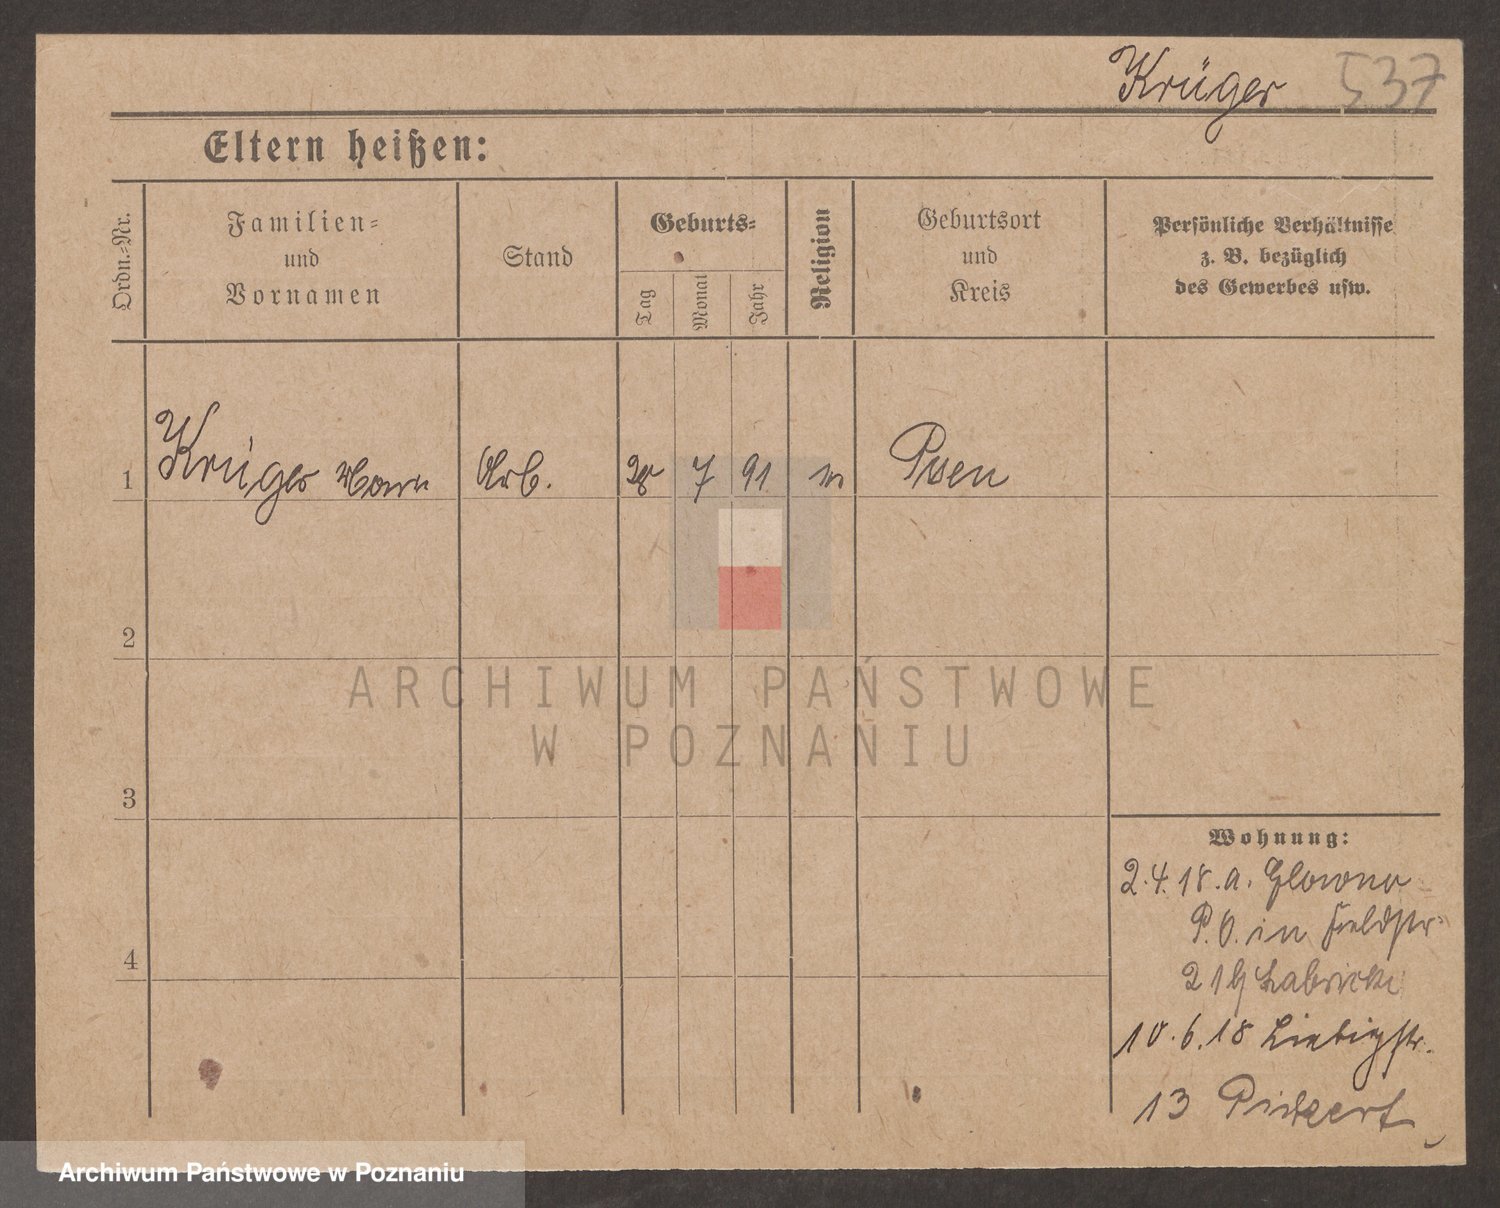 Krüger 537
Eltern heißen:
Ordn.-Nr.
Familien-
und
Vornamen
Stand
Geburts-
Tag
Monat
Jahr
Religion
Geburtsort
und
Kreis
Persönliche Verhältnisse
z. B. bezüglich
des Gewerbes usw.
1 Krüger Arb. 28 7 91 Posen
2
3
4
Wohnung:
2.4.18. a. Glowno
P.O. in Feldstr.
21
10.6.18 Liebigstr.
13
ARCHIWUM PAŃSTWOWE
W POZNANIU
Archiwum Państwowe w Poznaniu